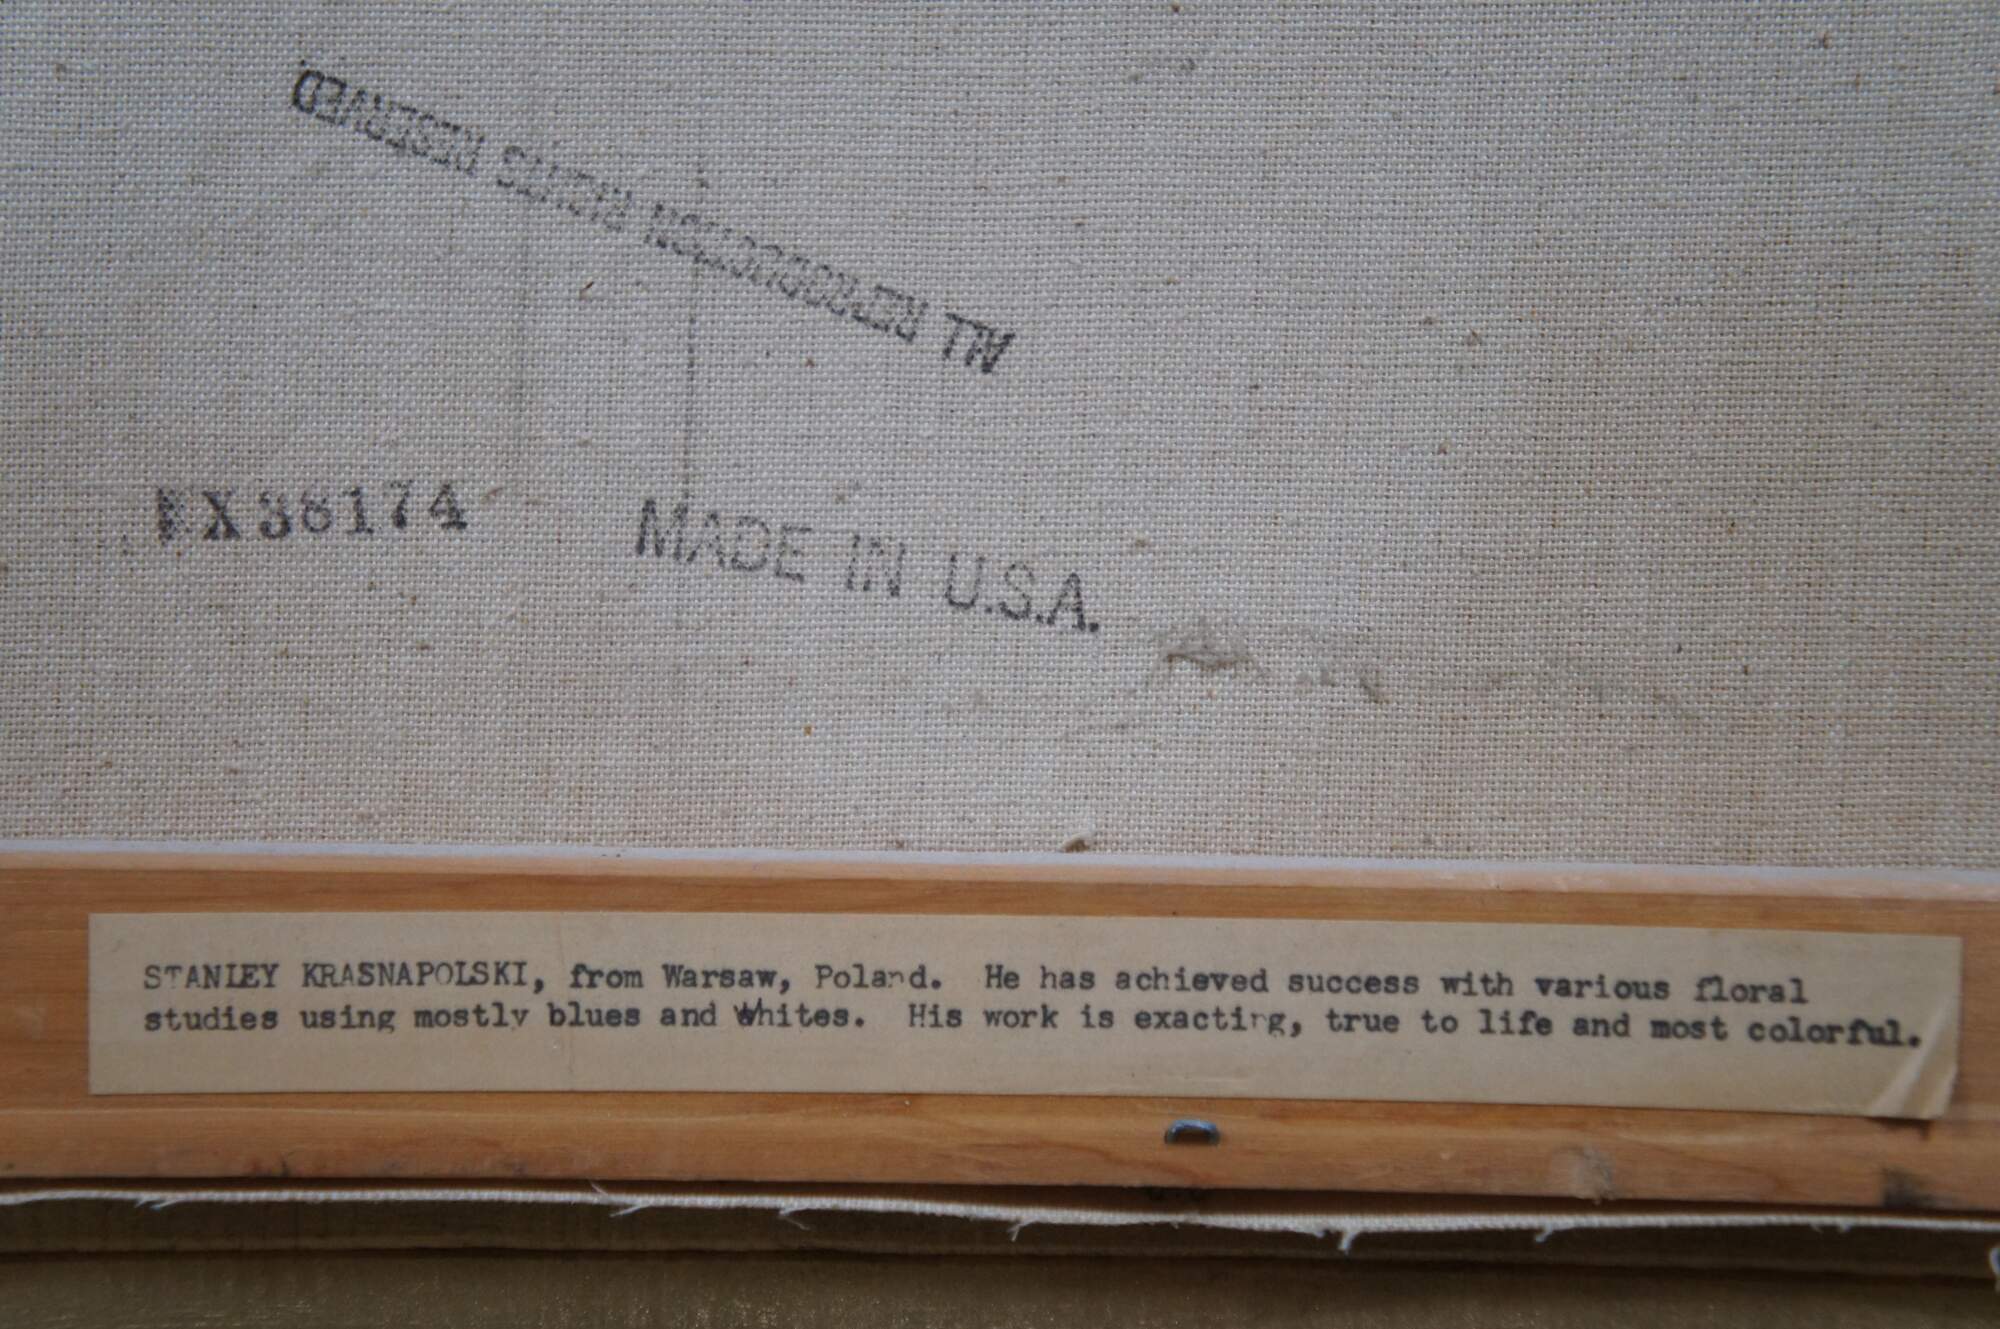 ALL REPRODUCTION RIGHTS RESERVED
EX38174
MADE IN U.S.A.
STANLEY KRASNAPOLSKI, from Warsaw, Poland. He has achieved success with various floral
studies using mostly blues and Whites. His work is exacting, true to life and most colorful.